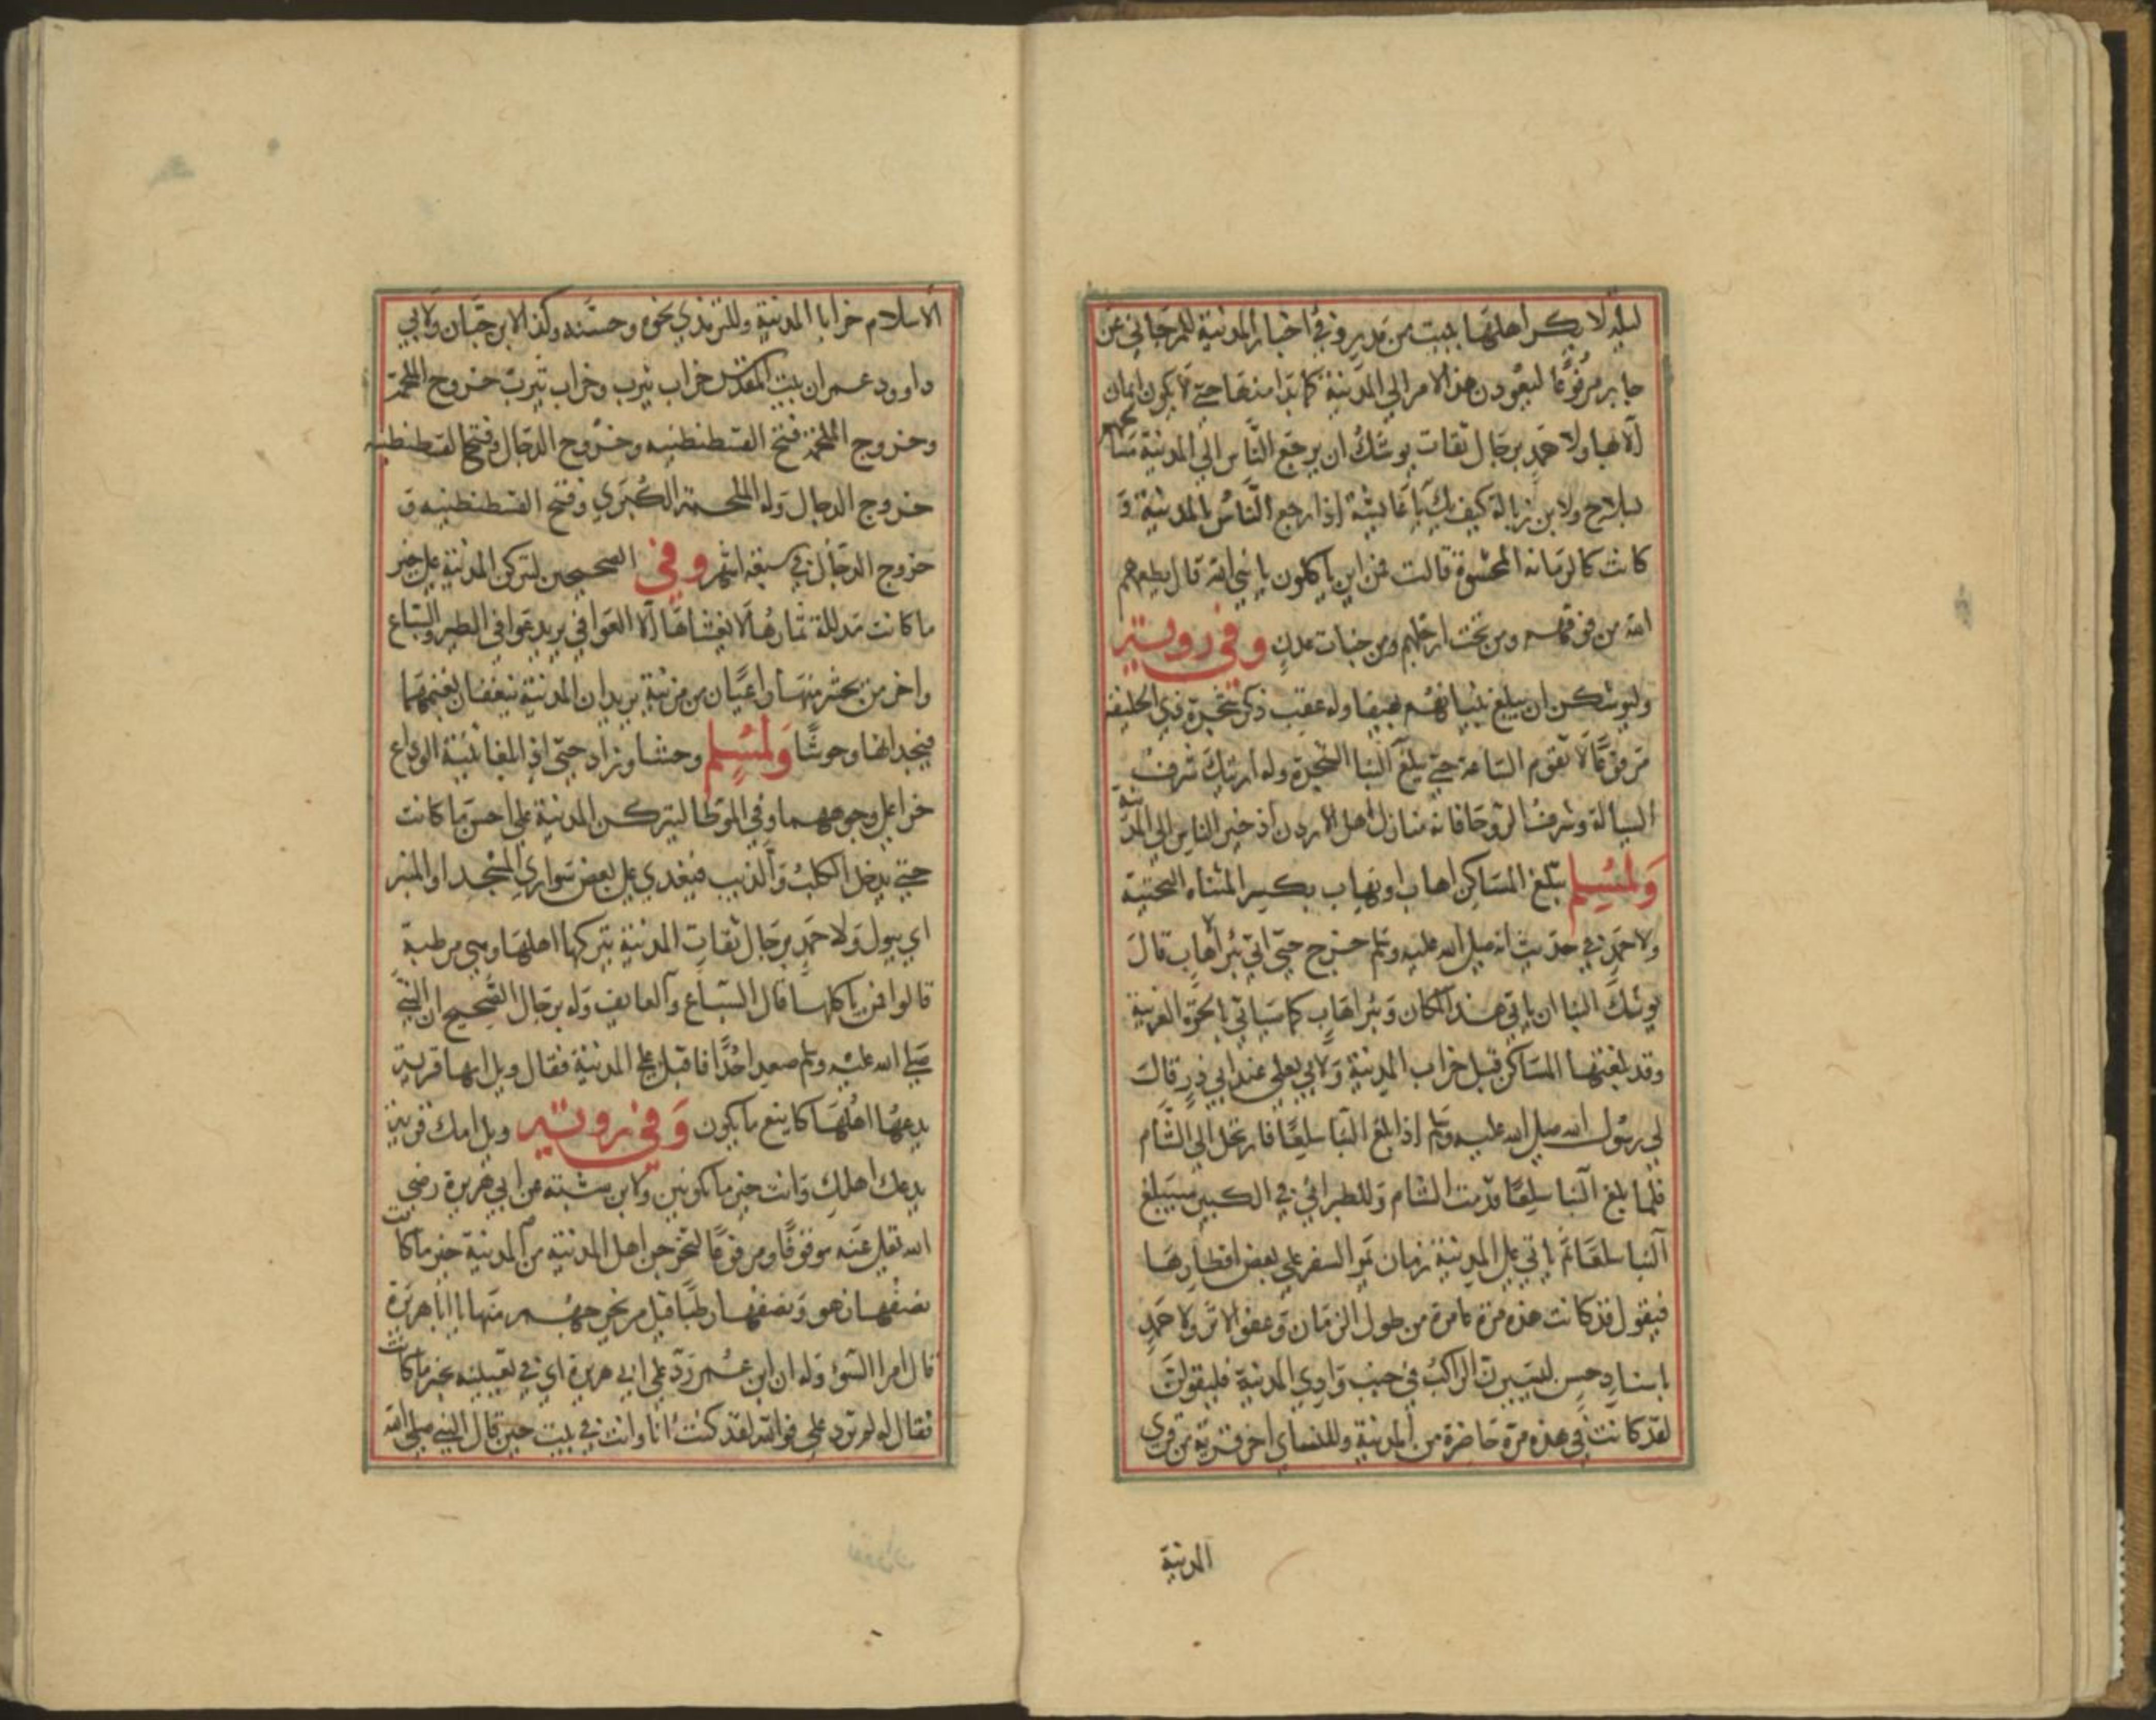 ليلة لا يكن أهلها ببيت من مدر وفي اخبار المدينة للمرجاني عن
جابر مرفوعا ليعودن هذا الامر الي المدينة كما بدا منها حتي لا يكون ايمان
الا بها ولاحمد برجال ثقات يوشك ان يرجع الناس الي المدينة مسالحهم
سلاح ولابن زبالة كيف بك يا عايشة اذا رجع الناس بالمدينة و
كانت كالرمانه المحشوة قالت فمن اين ياكلون يا نبي الله قال يطعمهم
الله من فوقهم ومن تحت ارجلهم ومن جنات عدن وفي رويتي
وليوشكن ان يبلغ بنيانهم وله عقب ذكر شجرة ذي الحليفة
مرفوعا لا تقوم الساعة حتي يبلغ البنا الشجرة وله اريتك شرف
السيالة وشرف الروحا فانه منازل اهل الاردن اذ خير الناس الي المدينة
ولمسلم تبلغ المساكن اهاب او يهاب بكسر المثناه التحتية
ولاحمد في حديث انه صلي الله عليه وسلم خرج حتي اتي بئر اهاب قال
يوشك البنا ان ياتي هذا المكان وبئر اهاب كما سياتي بالحرة الغربية
وقد بلغتها المساكن قبل خراب المدينة ولابي يعلي عند ابي ذر قال
لي رسول الله صلي الله عليه وسلم اذا بلغ البنا سلعا فارتحل الي الشام
فلما بلغ البنا سلعا قدمت الشام وللطبراني في الكبير سيبلغ
البنا سلعا ثم ياتي علي المدينة زمان يمر السفر علي بعض اقطارها
فيقول قد كانت هذه مرة عامرة من طول الزمان وعفو الاثر ولاحمد
باسناد حسن ليسيرن الراكب في جنب وادي المدينة فليقولن
لقد كانت في هذه مرة حاضرة من المدينة وللنساي اخر قرية من قري
المدينة
الاسلام خرابا المدينة وللترمذي نحوه وحسنه وكذا لابن حبان ولابي
داوود عمران بيت المقدس خراب يثرب وخراب يثرب خروج الملحمة
وخروج الملحمة فتح القسطنطنيه وخروج الدجال وفتح القسطنطنيه
خروج الدجال وله الملحمة الكبري وفتح القسطنطنيه و
خروج الدجال في سبعة اشهر وفي الصحيحين لتركن المدينة علي خير
ما كانت مذللة ثمارها لا يغشاها الا العوافي يريد عوافي الطير والسباع
واخر من يحشر منها راعيان من مزينة يريدان المدينة ينعقان بغنمهما
فيجدانها وحوشا ولمسلم وحشا وزاد حتي اذ ابلغا ثنية الوداع
خرا علي وجوههما وفي الموطا ليتركن المدينة علي احسن ما كانت
حتي يدخل الكلب والذيب فيغدي علي بعض سواري المسجد او المنبر
اي يبول ولاحمد برجال ثقات المدينة يتركها اهلها وهي مرطبة
قالوا فمن ياكلها قال السباع والعايف وله برجال الصحيح ان النبي
صلي الله عليه وسلم صعد احدا فاقبل علي المدينة فقال ويل امها قرية
يدعها اهلها كاينع ما يكون وفي رويتي ويل امك قرية
يدعك اهلك وانت خير ما تكونين ولابن شبته عن ابي هريرة رضي
الله تعلي عنه موقوفا ومرفوعا ليخرجن اهل المدينة من المدينة خير ما كانت
نصفها زهو ونصفها رطبا قيل من يخرجهم منها يا ابا هريرة
قال امرا السوء وله ان ابن عمر رد علي ابي هريرة اي في تعبيره بخير ما كانت
فقال له لم ترد علي فوالله لقد كنت انا وانت في بيت حين قال النبي صلي الله